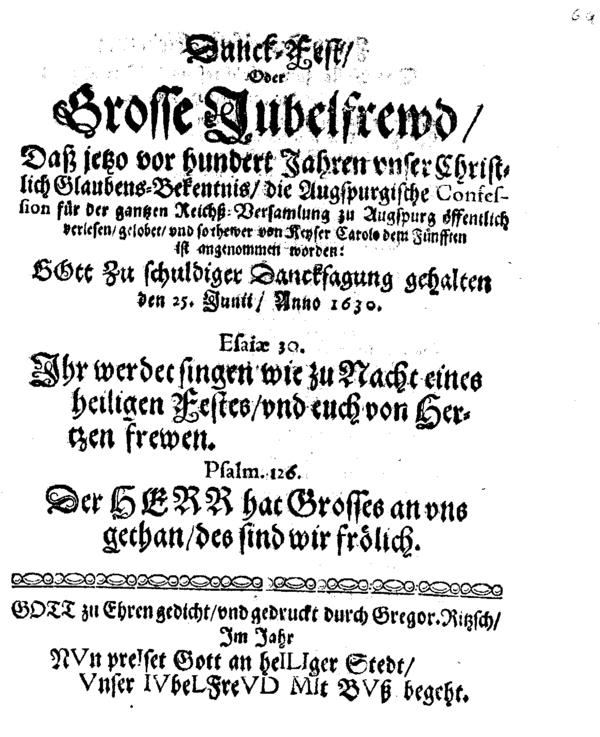 69
Danck-Fest/
Oder
Grosse Jubelfrewd/
Daß jetzo vor hundert Jahren vnser Christ-
lich Glaubens-Bekentnis/ die Augspurgische Confes-
sion für der gantzen Reichß-Versamlung zu Augspurg öffentlich
verlesen/ gelobet/ vnd so thewer von Keyser Carolo dem Fünfften
ist angenommen worden:
GOtt Zu schuldiger Dancksagung gehalten
den 25. Junii/ Anno 1630.
Esaiæ 30.
Ihr werdet singen wie zu Nacht eines
heiligen Festes/vnd euch von Her-
tzen frewen.
Psalm. 126.
Der HERR hat Grosses an vns
gethan/des sind wir frölich.
GOTT zu Ehren gedicht/vnd gedruckt durch Gregor. Ritzsch/
Im Jahr
NVn preIset Gott an heILIger Stedt/
Vnser IVbeLFreVD MIt BVß begeht.